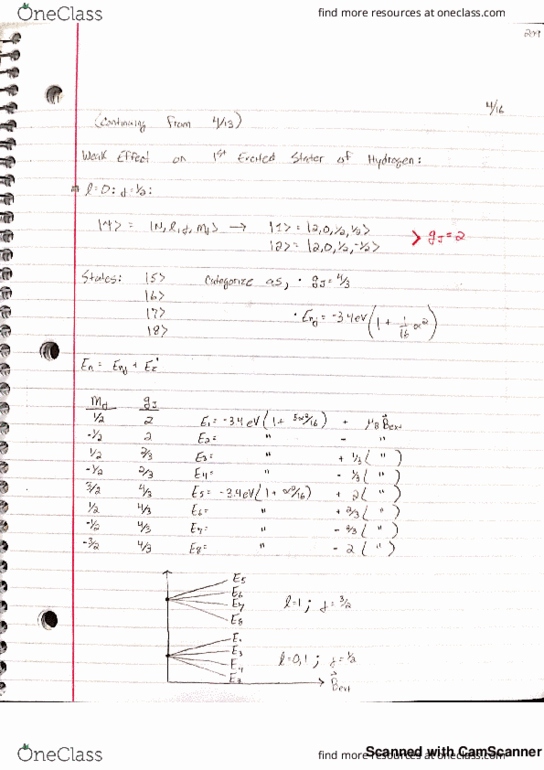 OneClass
find more resources at oneclass.com
4/16
(Continuing from 4/13)
Weak Effect on 1st Excited States of Hydrogen:
l=0: j=1/2:
|Ψ> = |N, l, j, mj> → |1> = |2,0,1/2,1/2>
|2> = |2,0,1/2,-1/2>
> gJ=2
States: |5> Categorize as, • gJ=4/3
|6>
|7> • Enj = -3.4eV(1 + 1/16 α²)
|8>
En = Enj + Ez'
mj gJ
1/2 2 E1= -3.4eV(1+ 5α²/16) + μB Bext
-1/2 2 E2= " - "
1/2 2/3 E3= " + 1/3( " )
-1/2 2/3 E4= " - 1/3( " )
3/2 4/3 E5= -3.4eV(1+ α²/16) + 2( " )
1/2 4/3 E6= " + 2/3( " )
-1/2 4/3 E7= " - 2/3( " )
-3/2 4/3 E8= " - 2( " )
E5
E6
E7 l=1; j=3/2
E8
E1
E3 l=0,1; j=1/2
E4
E2
Bext
OneClass
find more resources at oneclass.com
Scanned with CamScanner